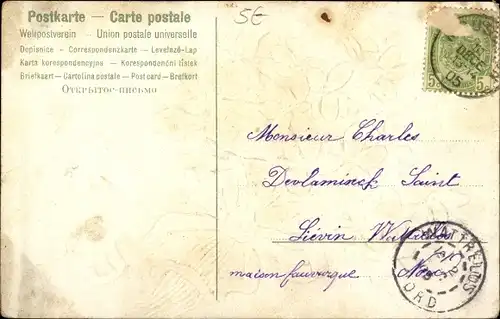 Postkarte — Carte postale
Weltpostverein — Union postale universelle
Dopisnice - Correspondenzkarte - Levelező-Lap
Karta korespondencyjna - Korespondenční lístek
Briefkaart - Cartolina postale - Post card - Brefkort
Открытое-письмо
5E
5c
5c
DECE
05
Monsieur Charles
Devlaminck Saint
Liévin Wattrelos
maison fauvergue Nord
WATTRELOS
NORD